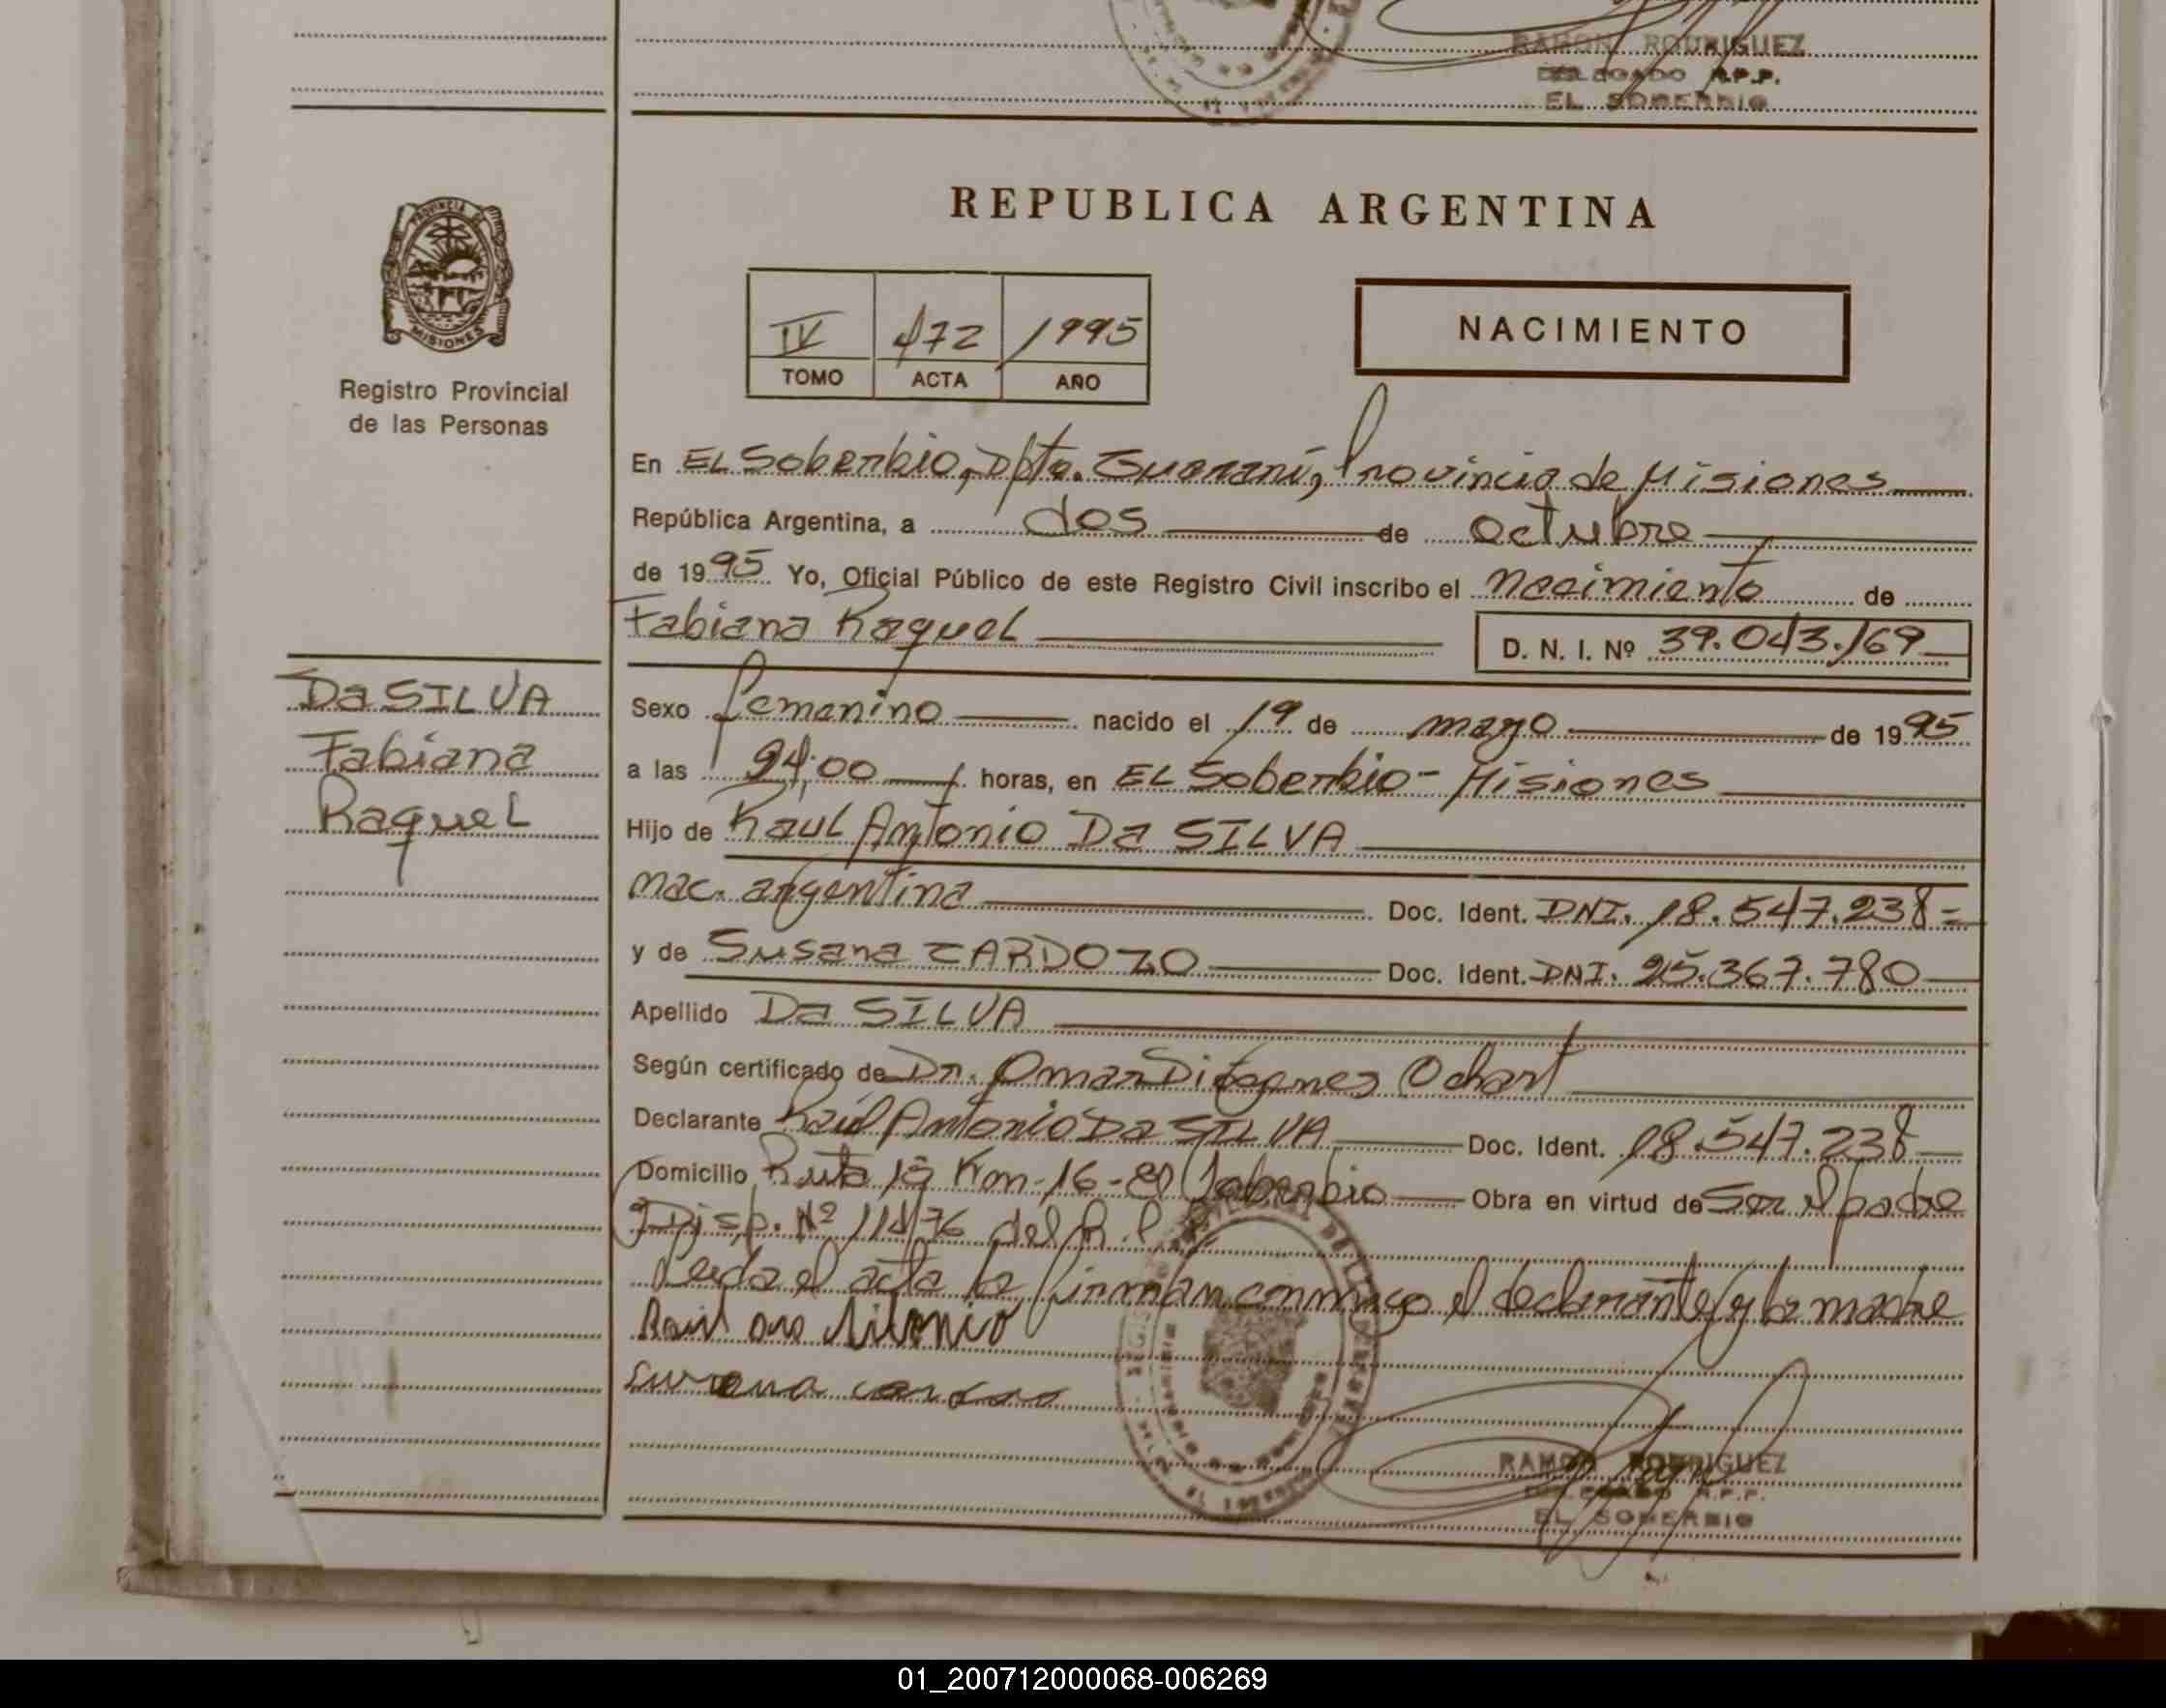 RAMON RODRIGUEZ
DELEGADO R.P.P.
EL SOBERBIO
REPUBLICA ARGENTINA
PROVINCIA DE
MISIONES
Registro Provincial
de las Personas
IV 472 1995
TOMO ACTA AÑO
NACIMIENTO
En EL Soberbio, Dpto. Guaraní, Provincia de Misiones
República Argentina, a dos de octubre
de 1995 Yo, Oficial Público de este Registro Civil inscribo el nacimiento de
Fabiana Raquel
D. N. I. Nº 39.043.169
Da SILVA
Fabiana
Raquel
Sexo femenino nacido el 19 de mayo de 1995
a las horas, en EL Soberbio - Misiones
Hijo de Raul Antonio Da SILVA
nac. argentina Doc. Ident. DNI. 18.547.238
y de Susana CARDOZO Doc. Ident. DNI. 25.367.780
Apellido Da SILVA
Según certificado de Dr. Omar Diógenes Ochart
Declarante Raúl Antonio Da SILVA Doc. Ident. 18.547.238
Domicilio Ruta 13 Km-16-El Soberbio Obra en virtud de Ser el padre
Disp. Nº 114/76 del R.P.P.
Leida el acta la firman conmigo el declarante y la madre
RAMON RODRIGUEZ
DELEGADO R.P.P.
EL SOBERBIO
01_200712000068-006269